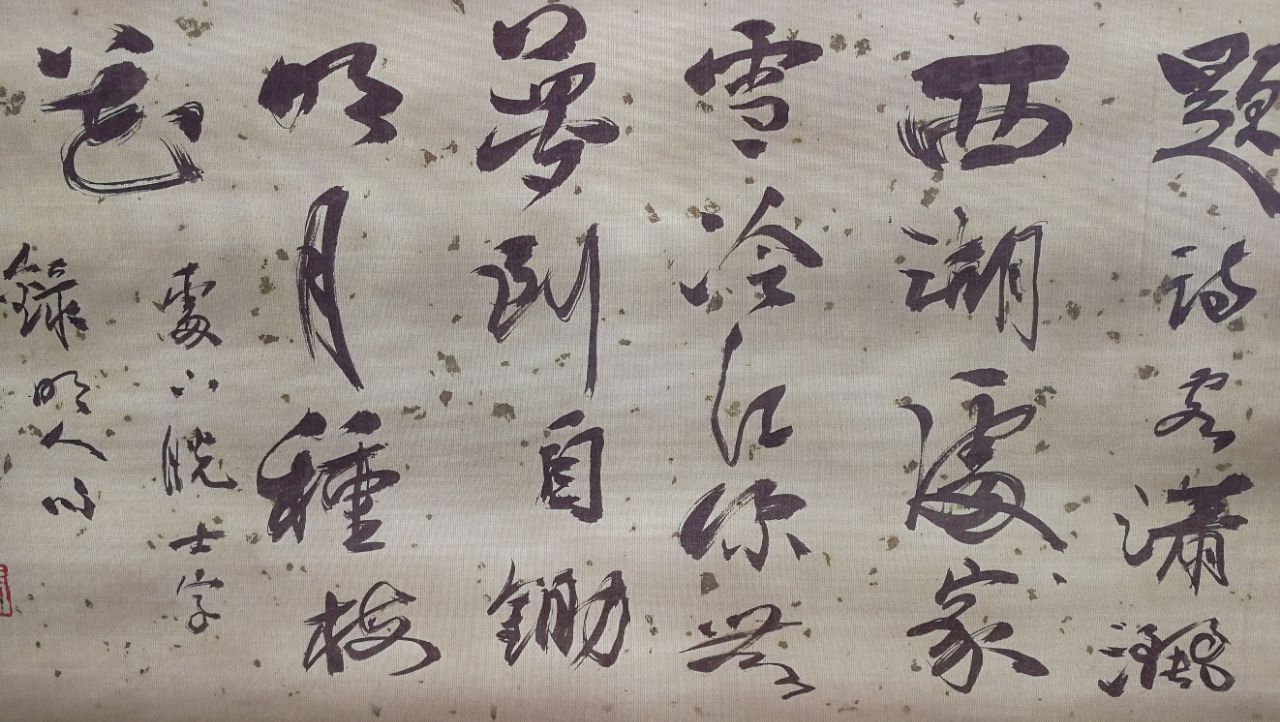 題詩客瀟灑
西湖處家
雪冷江深無
夢到自鋤
明月種梅
花
處下脫士字
錄明人